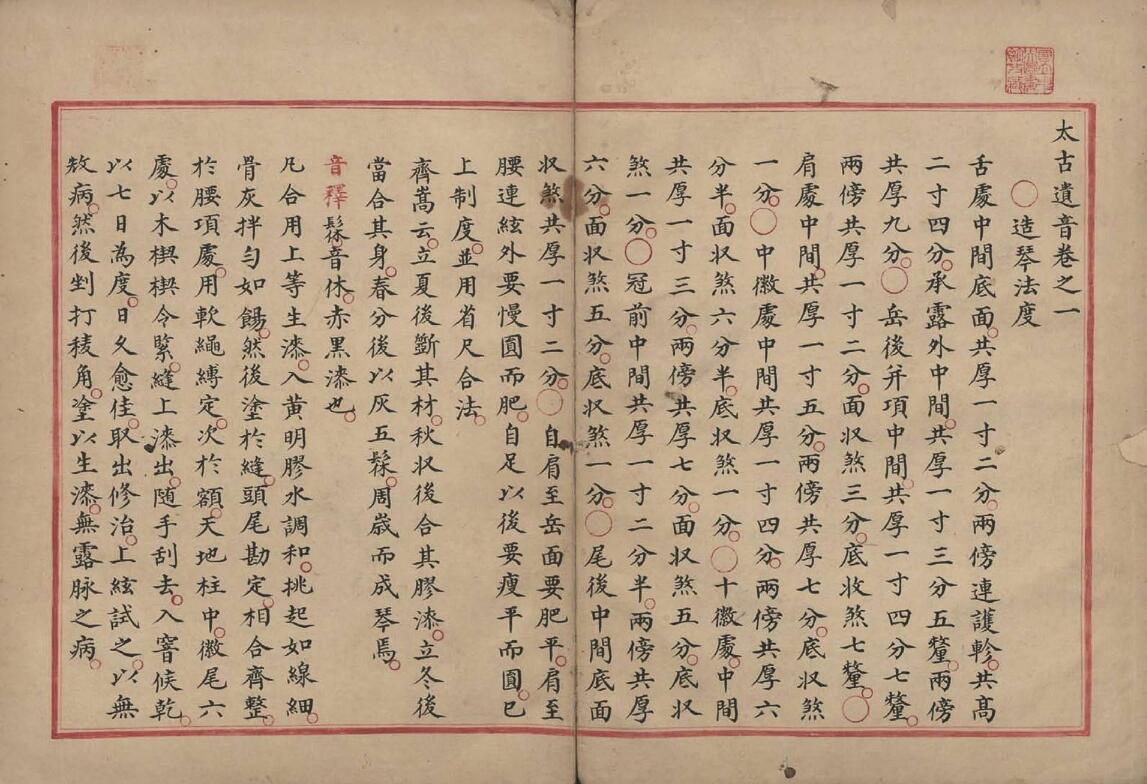 太古遺音卷之一
○造琴法度
舌處中間底面共厚一寸二分兩傍連護軫共髙
二寸四分承露外中間共厚一寸三分五釐兩傍
共厚九分○岳後幷項中間共厚一寸四分七釐
兩傍共厚一寸二分面収煞三分底收煞七釐○
肩處中間共厚一寸五分兩傍共厚七分底収煞
一分○中徽處中間共厚一寸四分兩傍共厚六
分半面収煞六分半底収煞一分○十徽處中間
共厚一寸三分兩傍共厚七分面収煞五分底収
煞一分○冠前中間共厚一寸二分半兩傍共厚
六分面収煞五分底収煞一分○尾後中間底面
収煞共厚一寸二分○自肩至岳面要肥平肩至
腰連絃外要慢圓而肥自足以後要瘦平而圓已
上制度並用省尺合法
齊嵩云立夏後斵其材秋収後合其膠漆立冬後
當合其身春分後以灰五髹周歲而成琴焉
音釋髹音休赤黑漆也
凡合用上等生漆入黄明膠水調和挑起如線細
骨灰拌勻如餳然後塗於縫頭尾勘定相合齊整
於腰項處用軟繩縛定次於額天地柱中徽尾六
處以木楔楔令緊縫上漆出随手刮去入窨候乾
以七日為度日久愈佳取出修治上絃試之以無
敍病然後剉打稜角塗以生漆無露脉之病